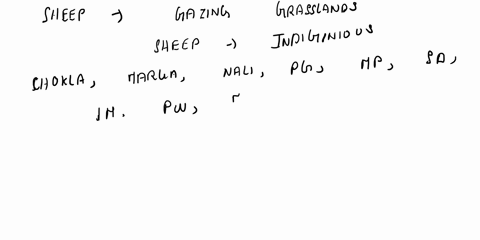 SHEEP → GAZING GRASSLANDS
SHEEP → INDIGINIOUS
CHOKLA, MARWA, NALI, PG, MP, SD,
JM. PW, r